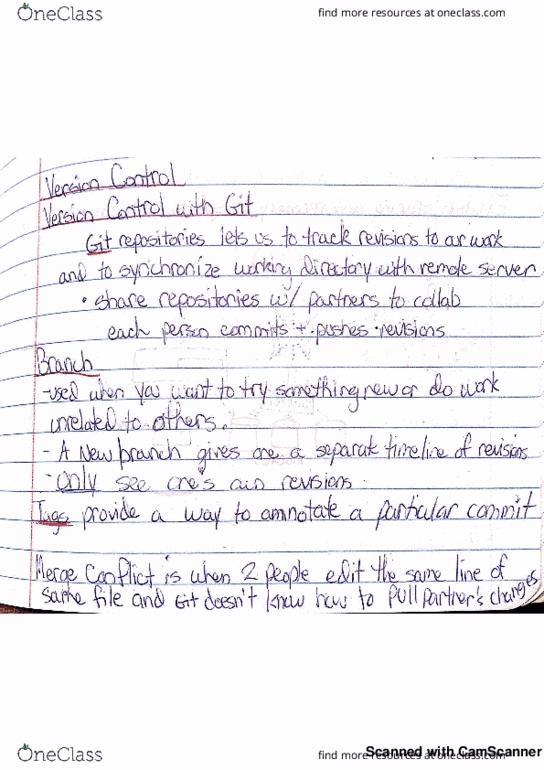 OneClass
find more resources at oneclass.com
Version Control
Version Control with Git
Git repositories lets us to track revisions to our work
and to synchronize working directory with remote server
• share repositories w/ partners to collab
each person commits + pushes revisions
Branch
-used when you want to try something new or do work
unrelated to others.
- A New branch gives one a separate timeline of revisions
- Only see one's own revisions
Tags provide a way to annotate a particular commit
Merge Conflict is when 2 people edit the same line of
same file and Git doesn't know how to pull partner's changes
OneClass
find more resources at oneclass.com
Scanned with CamScanner